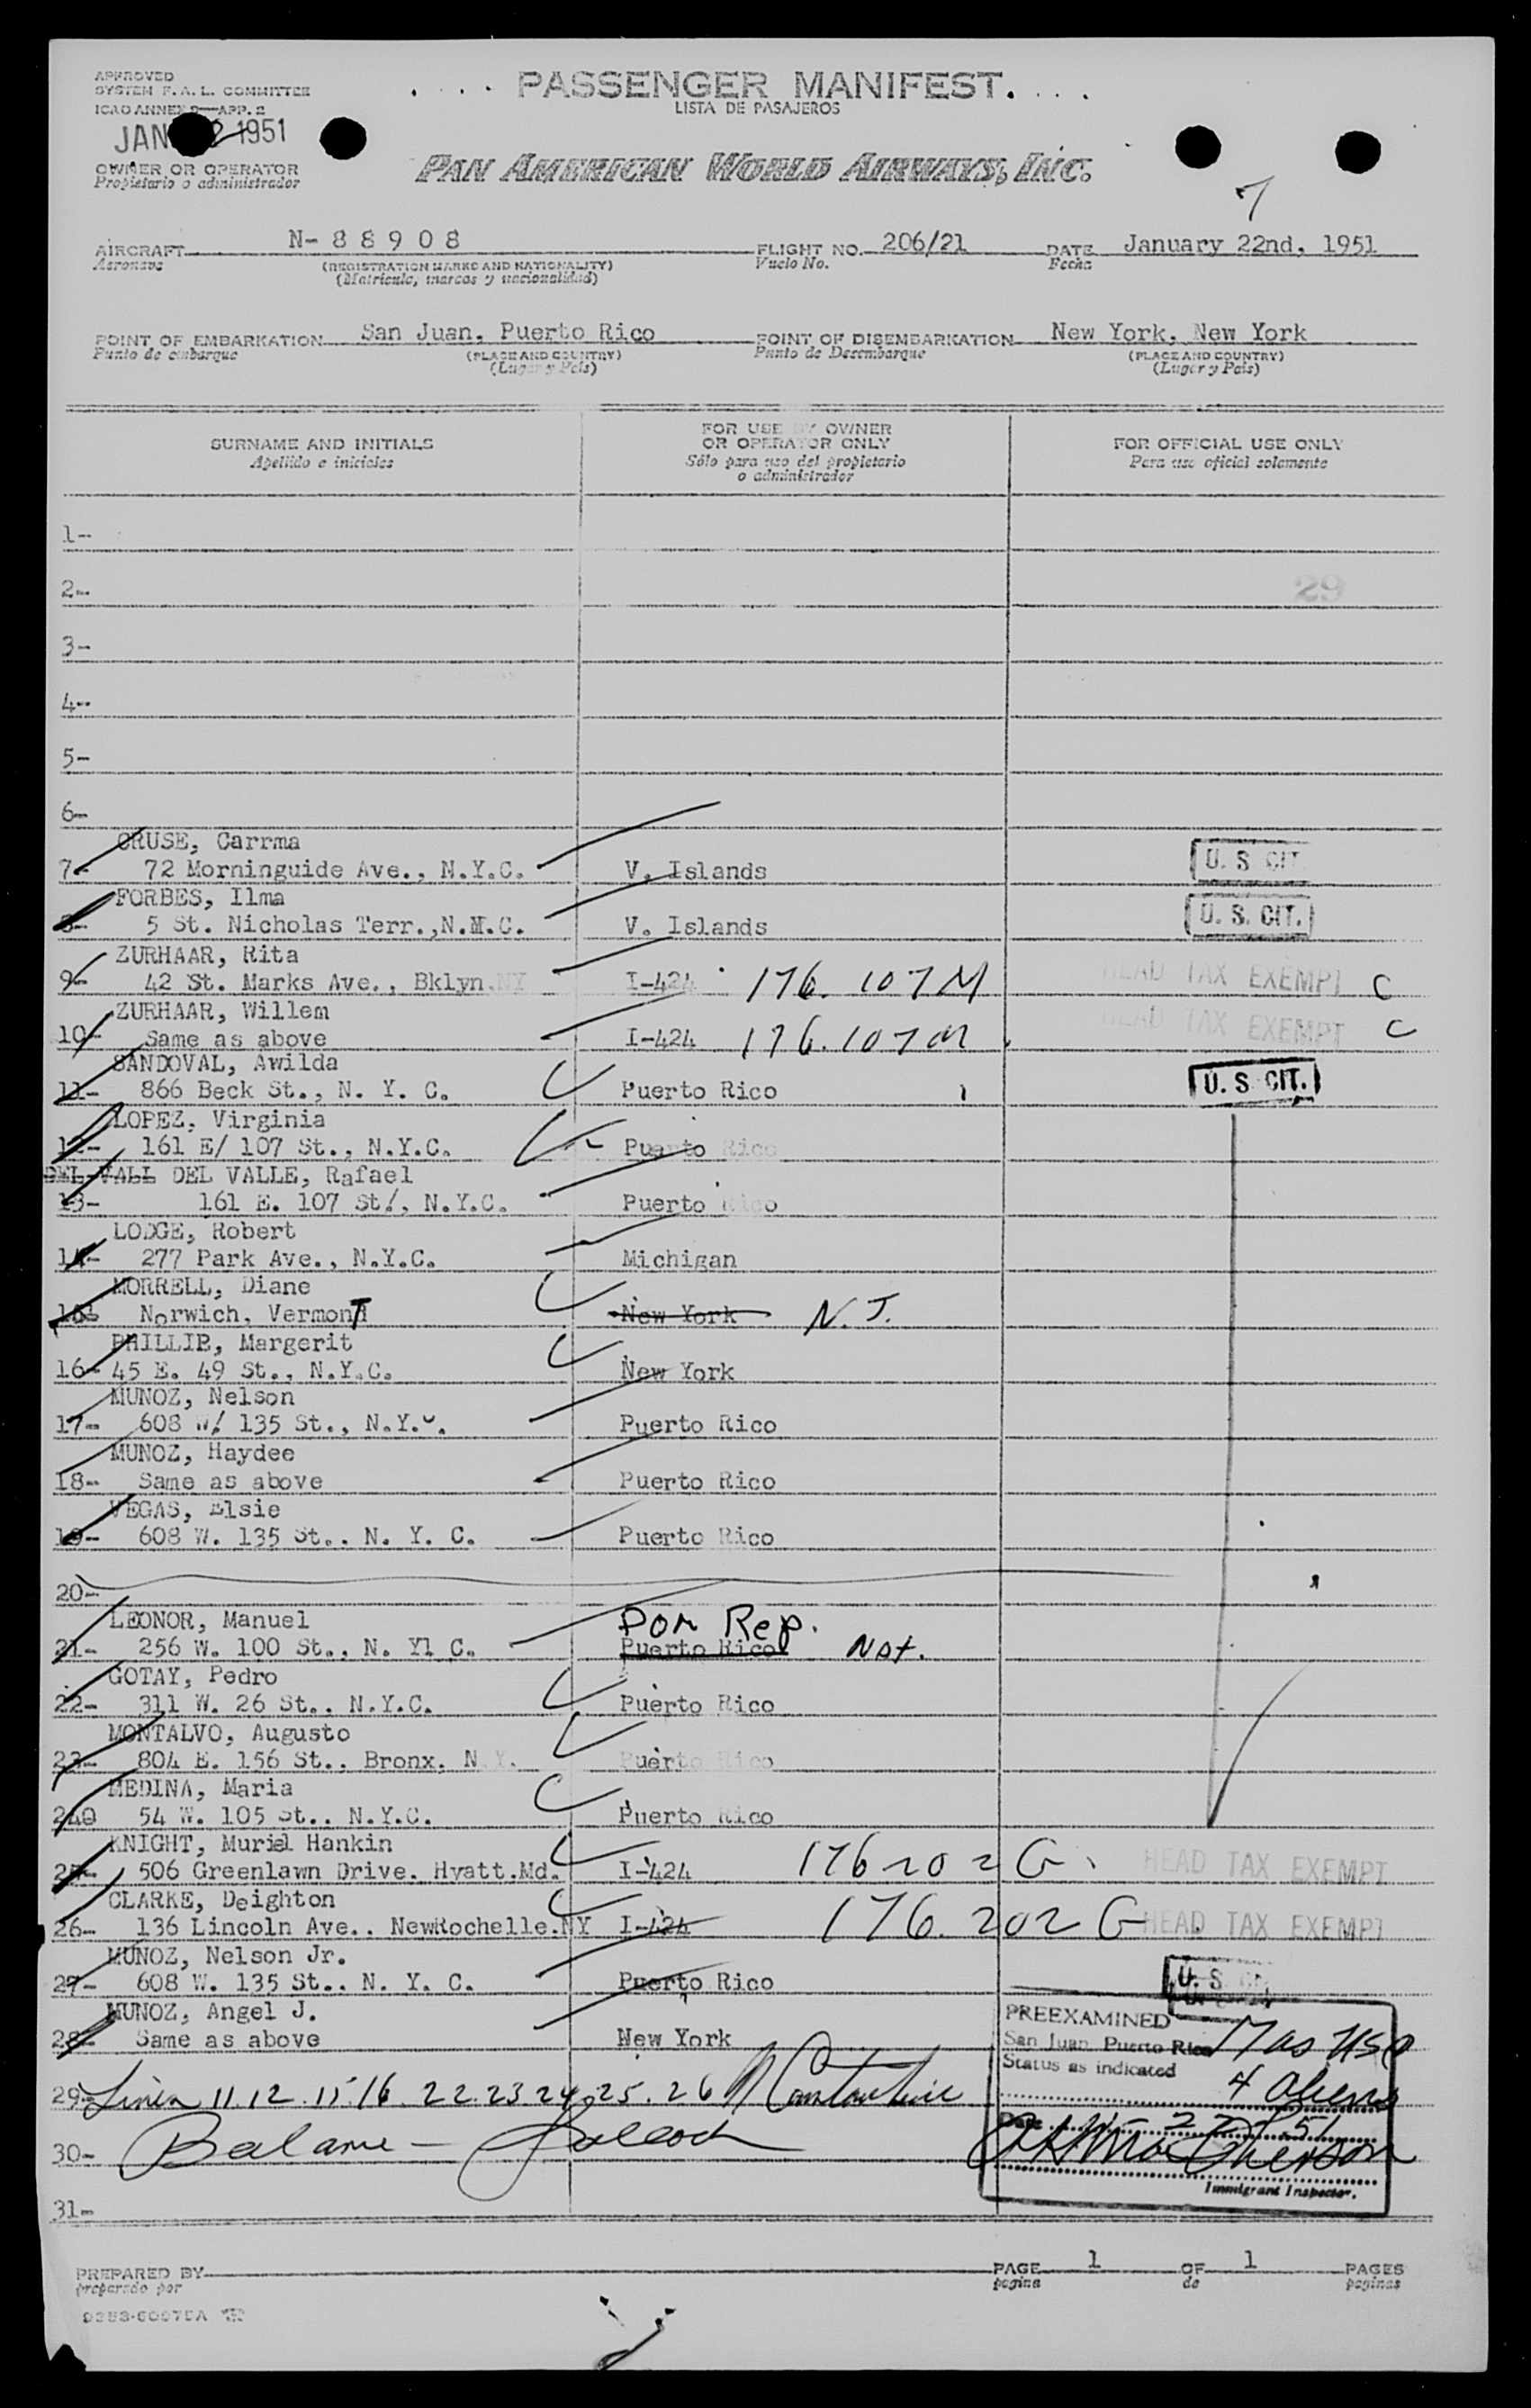 APPROVED
SYSTEM F.A.L. COMMITTEE
ICAO ANNEX 9—APP. 2
JAN 22 1951
PASSENGER MANIFEST
LISTA DE PASAJEROS
OWNER OR OPERATOR
Propietario o administrador
PAN AMERICAN WORLD AIRWAYS, INC.
7
AIRCRAFT N- 8 8 9 0 8 FLIGHT NO. 206/21 DATE January 22nd, 1951
Aeronave (REGISTRATION MARKS AND NATIONALITY) Vuelo No. Fecha
(Matricula, marcas y nacionalidad)
POINT OF EMBARKATION San Juan, Puerto Rico POINT OF DISEMBARKATION New York, New York
Punto de embarque (PLACE AND COUNTRY) Punto de Desembarque (PLACE AND COUNTRY)
(Lugar y Pais) (Lugar y Pais)
SURNAME AND INITIALS FOR USE BY OWNER OR OPERATOR ONLY FOR OFFICIAL USE ONLY
Apellido e iniciales Sólo para uso del propietario o administrador Para uso oficial solamente
1-
2- 29
3-
4-
5-
6-
CRUSE, Carrma
7- 72 Morninguide Ave., N.Y.C. V. Islands U. S. CIT.
FORBES, Ilma
8- 5 St. Nicholas Terr.,N.M.C. V. Islands U. S. CIT.
ZURHAAR, Rita
9- 42 St. Marks Ave., Bklyn.NY I-424 176.107M HEAD TAX EXEMPT C
ZURHAAR, Willem
10- Same as above I-424 176.107M HEAD TAX EXEMPT C
SANDOVAL, Awilda
11- 866 Beck St., N. Y. C. Puerto Rico U. S. CIT.
LOPEZ, Virginia
12- 161 E/ 107 St., N.Y.C. Puerto Rico
DEL VALL DEL VALLE, Rafael
13- 161 E. 107 St/, N.Y.C. Puerto Rico
LODGE, Robert
14- 277 Park Ave., N.Y.C. Michigan
MORRELL, Diane
15- Norwich, Vermont New York N.J.
PHILLIP, Margerit
16- 45 E. 49 St., N.Y.C. New York
MUNOZ, Nelson
17- 608 W/ 135 St., N.Y.C. Puerto Rico
MUNOZ, Haydee
18- Same as above Puerto Rico
VEGAS, Elsie
19- 608 W. 135 St., N. Y. C. Puerto Rico
20-
LEONOR, Manuel Dom Rep.
21- 256 W. 100 St., N. Yl C. Puerto Rico Nat.
GOTAY, Pedro
22- 311 W. 26 St., N.Y.C. Puerto Rico
MONTALVO, Augusto
23- 804 E. 156 St., Bronx, N.Y. Puerto Rico
MEDINA, Maria
240 54 W. 105 St., N.Y.C. Puerto Rico
KNIGHT, Muriel Hankin
25- 506 Greenlawn Drive. Hyatt.Md. I-424 176202G HEAD TAX EXEMPT
CLARKE, Deighton
26- 136 Lincoln Ave., NewRochelle.NY I-424 176.202G HEAD TAX EXEMPT
MUNOZ, Nelson Jr.
27- 608 W. 135 St., N. Y. C. Puerto Rico U. S. CIT.
MUNOZ, Angel J.
28- Same as above New York
PREEXAMINED
San Juan, Puerto Rico 17 as USC
Status as indicated 4 aliens
29- Lines 11.12.15.16.22.23.24.25.26
Date 1-22-51
30- Balance -
Immigrant Inspector.
31-
PREPARED BY PAGE 1 OF 1 PAGES
preparado por pagina de paginas